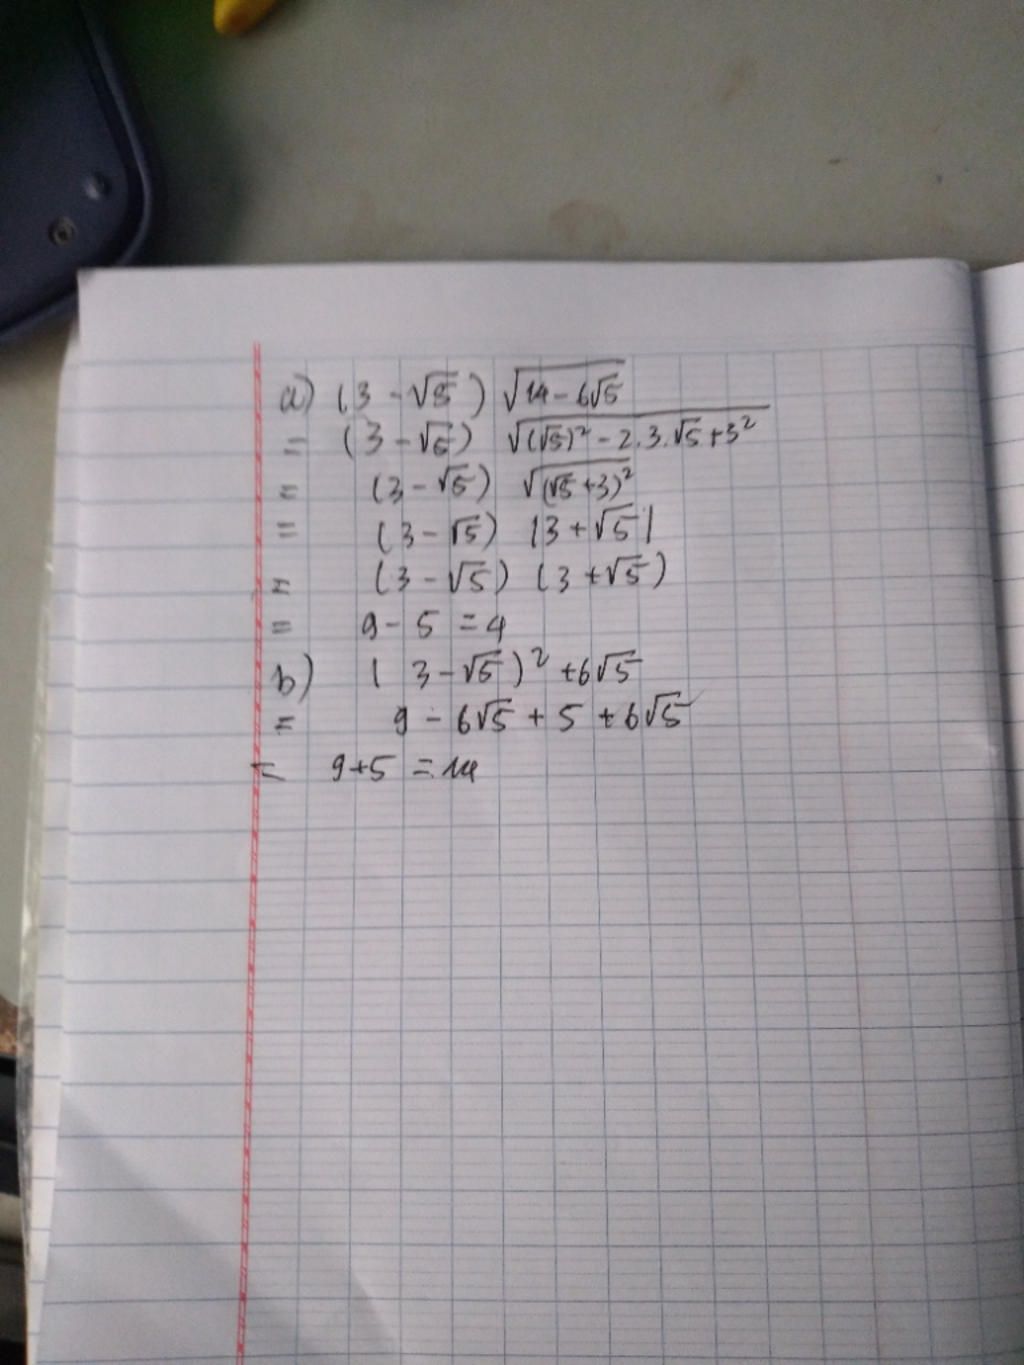 a) (3 - √5) √14 - 6√5
= (3 - √5) √(√5)² - 2.3.√5 + 3²
= (3 - √5) √(√5 + 3)²
= (3 - √5) |3 + √5|
= (3 - √5) (3 + √5)
= 9 - 5 = 4
b) (3 - √5)² + 6√5
= 9 - 6√5 + 5 + 6√5
= 9 + 5 = 14